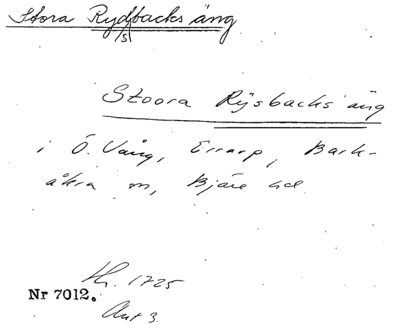 Stora Rydsbacks äng
Stoora Rÿsbacks äng
i Ö. Vång, Errarp, Bark-
åkra sn, Bjäre hd.
1725
Nr 7012.
Akt 3.